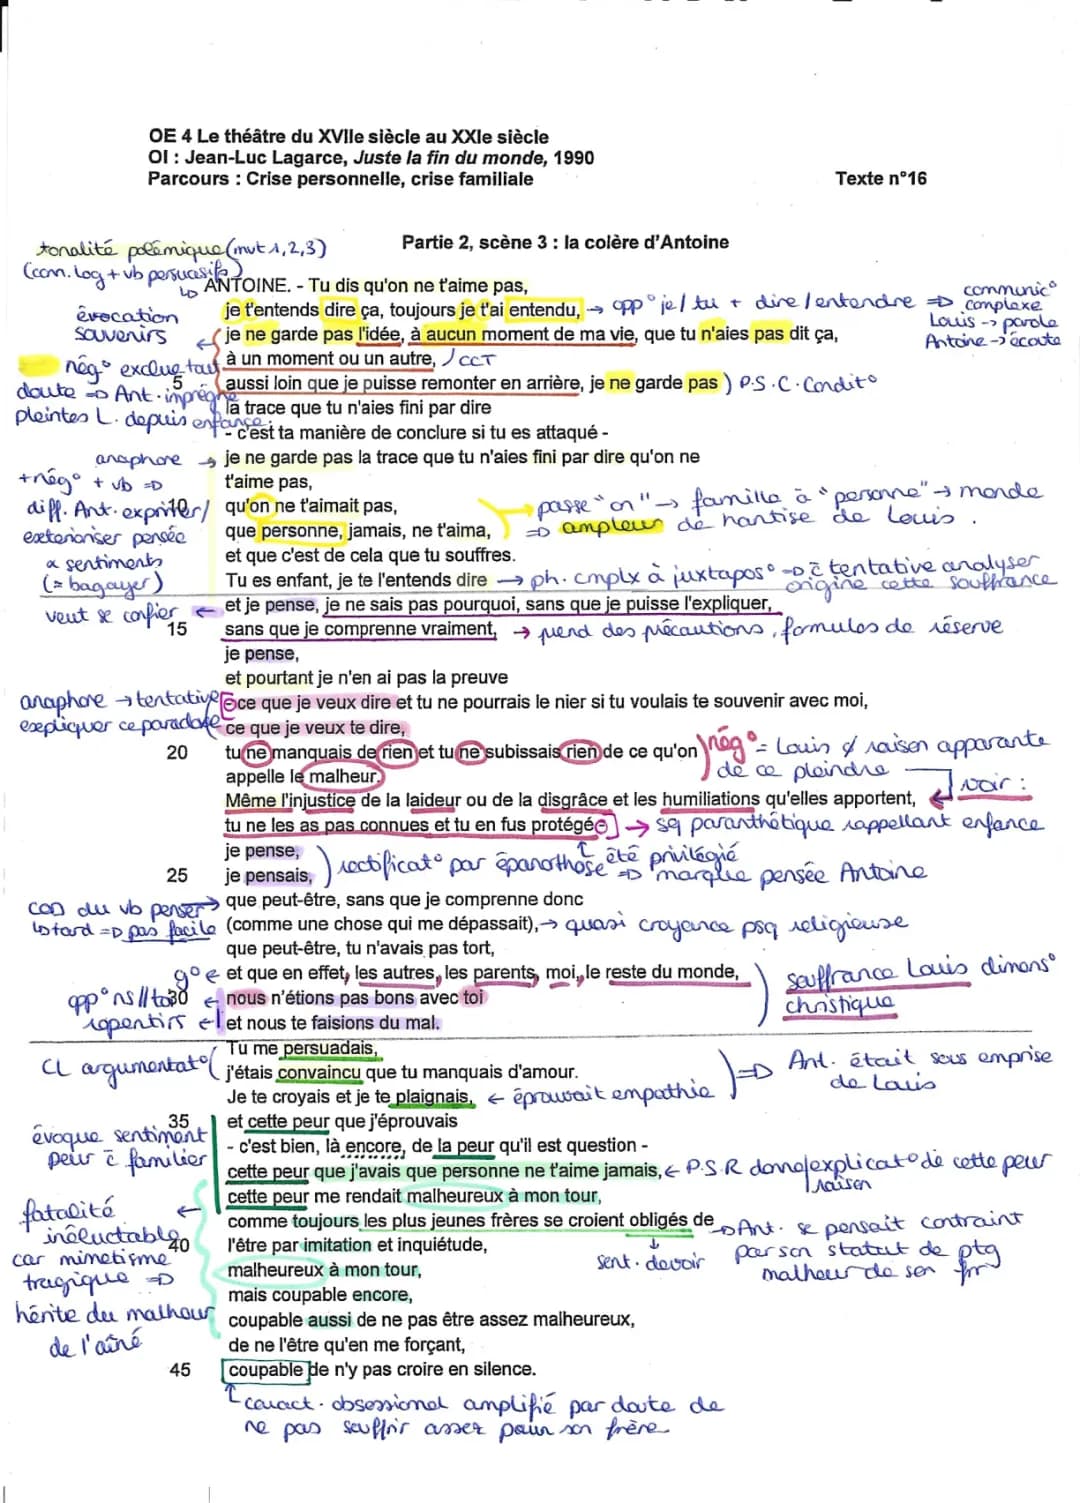 OE 4 Le théâtre du XVIIe siècle au XXIe siècle
OI : Jean-Luc Lagarce, Juste la fin du monde, 1990
Parcours : Crise personnelle, crise familiale
Texte n°16
Partie 2, scène 3 : la colère d'Antoine
tonalité polémique (mvt 1,2,3)
(conn. log + vb persuasifs)
ANTOINE. - Tu dis qu'on ne t'aime pas,
je t'entends dire ça, toujours je t'ai entendu, → opp° je/ tu + dire / entendre => communic° complexe
Louis -> parole
Antoine -> écoute
évocation souvenirs
je ne garde pas l'idée, à aucun moment de ma vie, que tu n'aies pas dit ça,
à un moment ou un autre, / CCT
nég° exclue tout doute => Ant. imprégné plaintes L. depuis enfance.
5
aussi loin que je puisse remonter en arrière, je ne garde pas ) P.S.C. Condit°
la trace que tu n'aies fini par dire
- c'est ta manière de conclure si tu es attaqué -
anaphore → je ne garde pas la trace que tu n'aies fini par dire qu'on ne
t'aime pas,
+ nég° + vb => diff. Ant. exprimer/ extérioriser pensée & sentiments (= bagayer)
10
qu'on ne t'aimait pas,
que personne, jamais, ne t'aima,
passe "on" → famille à "personne" → monde
=> ampleur de hantise de Louis.
et que c'est de cela que tu souffres.
Tu es enfant, je te l'entends dire → ph. cmplx à juxtapos° => c̄ tentative analyser origine cette souffrance
veut se confier ← et je pense, je ne sais pas pourquoi, sans que je puisse l'expliquer,
15
sans que je comprenne vraiment, → prend des précautions, formules de réserve
je pense,
et pourtant je n'en ai pas la preuve
anaphore → tentative expliquer ce paradoxe
- ce que je veux dire et tu ne pourrais le nier si tu voulais te souvenir avec moi,
ce que je veux te dire,
20
tu ne manquais de rien et tu ne subissais rien de ce qu'on
appelle le malheur.
nég° = Louis Ø raison apparante de ce pleindre
voir :
Même l'injustice de la laideur ou de la disgrâce et les humiliations qu'elles apportent,
tu ne les as pas connues et tu en fus protégé - → sq paranthétique rappellant enfance
été privilégié
je pense,
25
je pensais,
rectificat° par épanorthose => marque pensée Antoine
COD du vb penser → que peut-être, sans que je comprenne donc
tard => pas facile
(comme une chose qui me dépassait), → quasi croyance psq religieuse
que peut-être, tu n'avais pas tort,
g° ← et que en effet, les autres, les parents, moi, le reste du monde,
30
opp° ns // toi ← nous n'étions pas bons avec toi
repentirs ← et nous te faisions du mal.
souffrance Louis dimens° christique
Tu me persuadais,
CL argumentat° ( j'étais convaincu que tu manquais d'amour.
Je te croyais et je te plaignais, ← éprouvait empathie
=> Ant. était sous emprise de Louis
35
et cette peur que j'éprouvais
évoque sentiment peur c̄ familier
- c'est bien, là encore, de la peur qu'il est question -
cette peur que j'avais que personne ne t'aime jamais, ← P.S.R donne explicat° de cette peur
raison
cette peur me rendait malheureux à mon tour,
fatalité inéluctable car mimetisme tragique => hérite du malheur de l'aîné
comme toujours les plus jeunes frères se croient obligés de
40
l'être par imitation et inquiétude,
sent. devoir
=> Ant. se pensait contraint par son statut de ptg malheur de son fr
malheureux à mon tour,
mais coupable encore,
coupable aussi de ne pas être assez malheureux,
de ne l'être qu'en me forçant,
45
coupable de n'y pas croire en silence.
caract. obsessionel amplifié par doute de
ne pas souffrir assez pour son frère